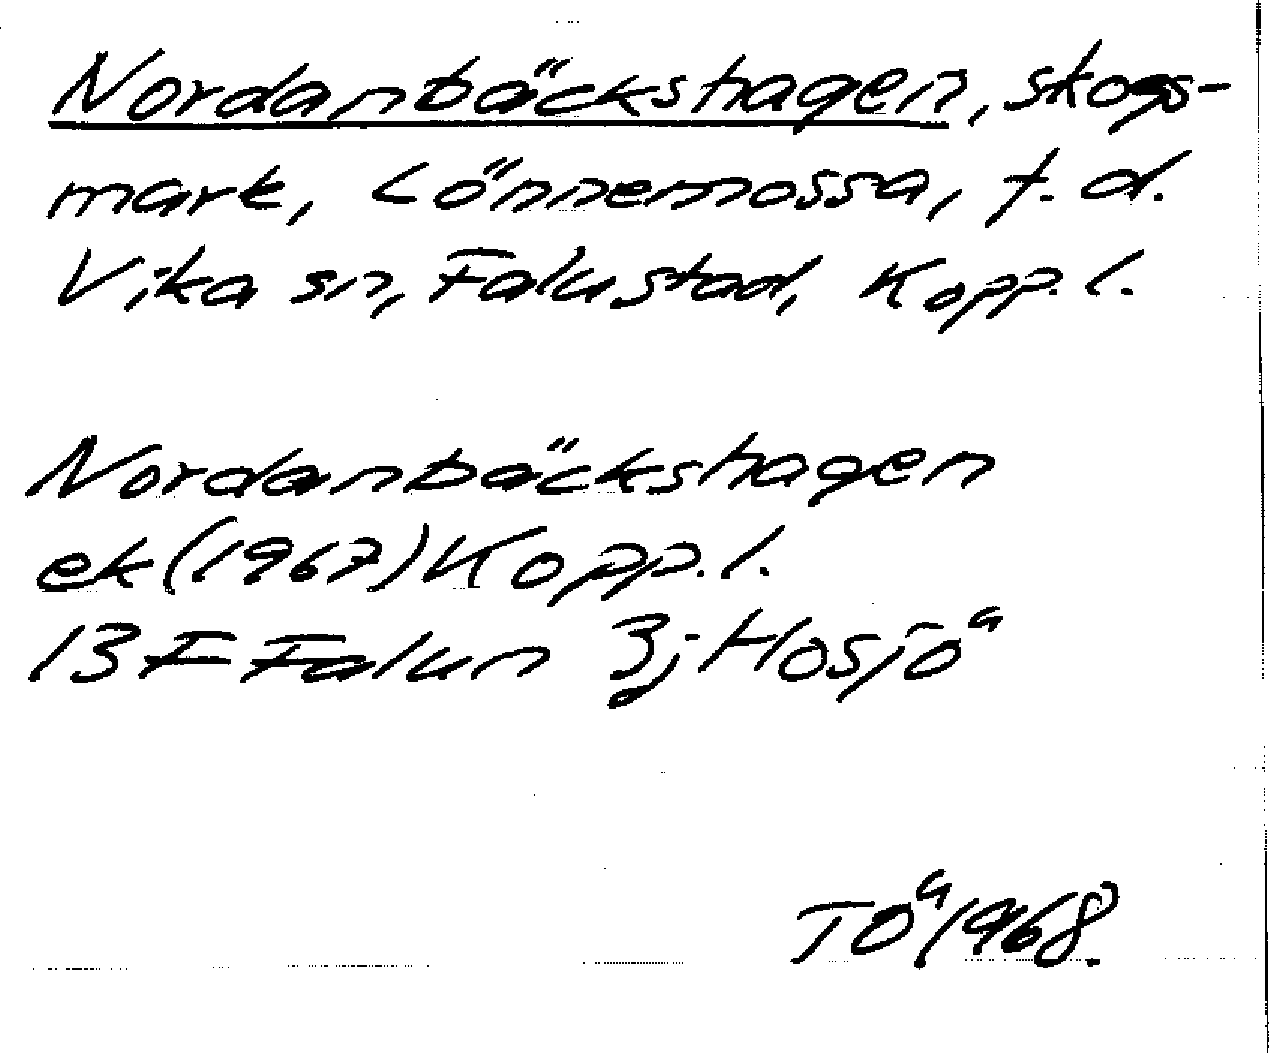 Nordanbäckshagen, skogs-
mark, Lönnemossa, f.d.
Vika sn, Falu stad, Kopp. l.
Nordanbäckshagen
ek (1967) Kopp. l.
13 F Falun 3j Hosjö
TÖ 1968.